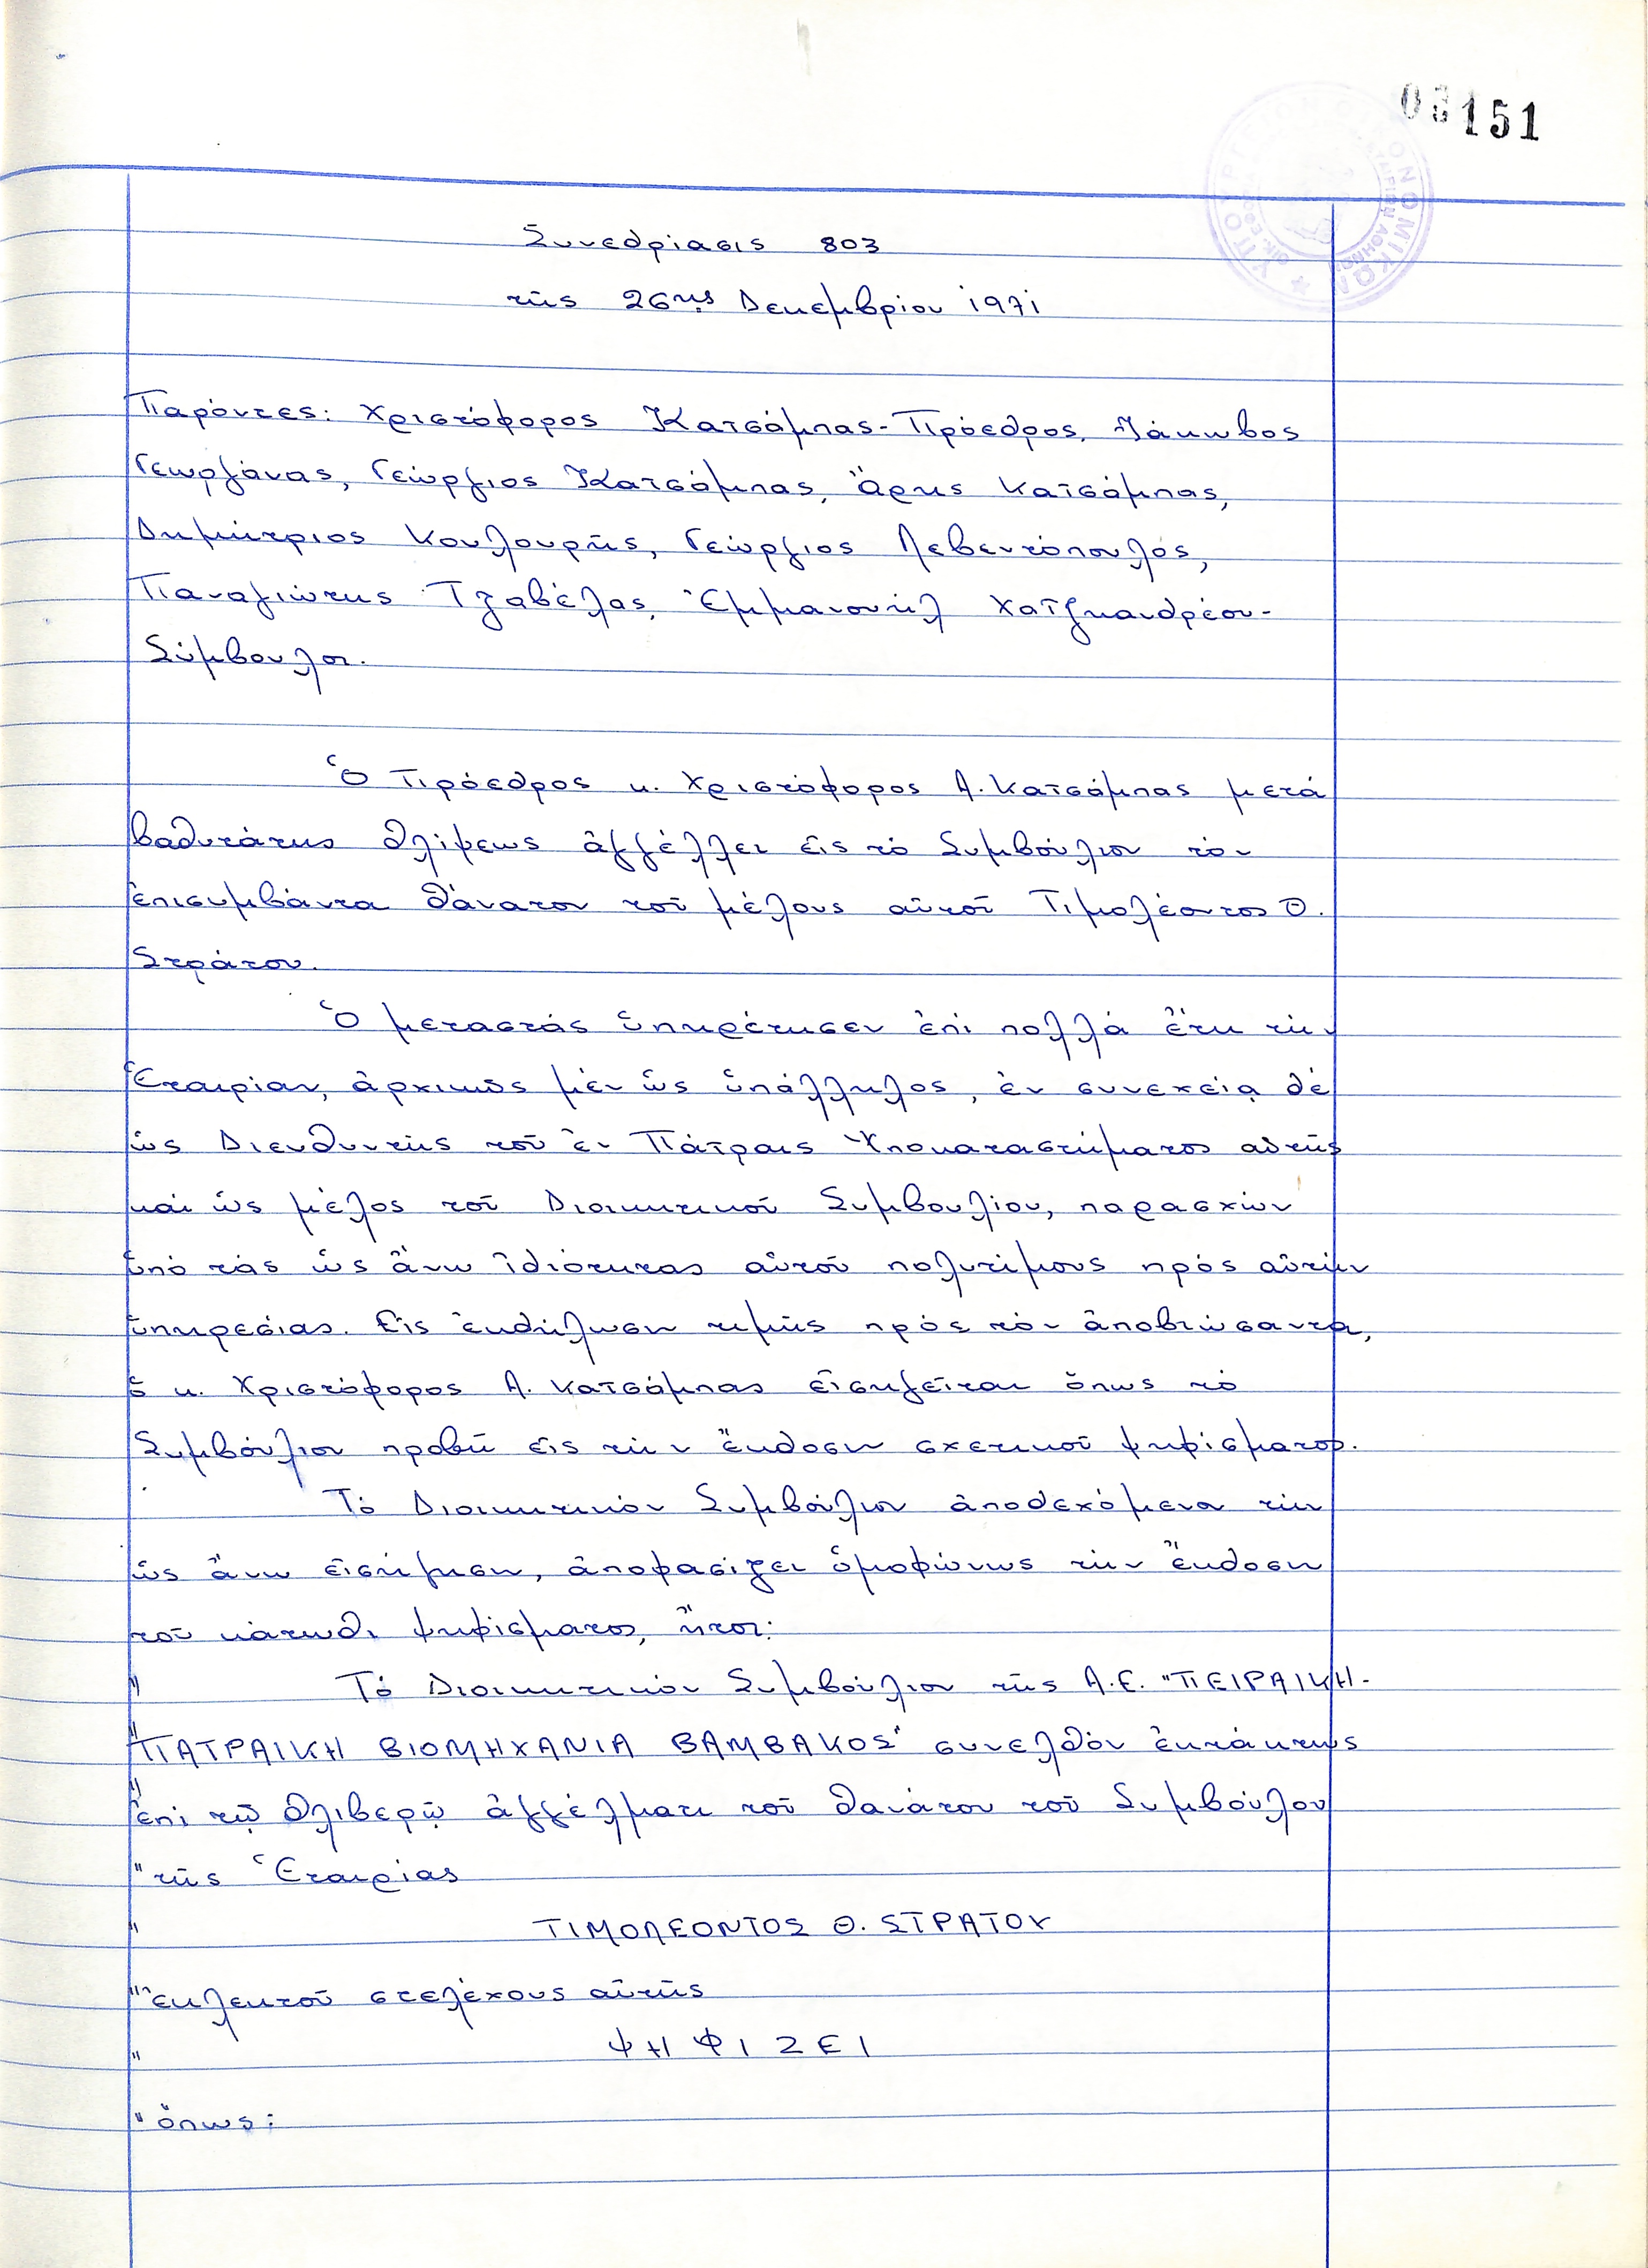 03151
ΥΠΟΥΡΓΕΙΟΝ ΟΙΚΟΝΟΜΙΚΩΝ
Συνεδρίασις 803
τῆς 26ης Δεκεμβρίου 1971
Παρόντες: Χριστόφορος Κατσάμπας - Πρόεδρος, Ἰάκωβος
Γεωργάνας, Γεώργιος Κατσάμπας, Ἄρης Κατσάμπας,
Δημήτριος Κουλουρῆς, Γεώργιος Λεβεντόπουλος,
Παναγιώτης Τζαβέλας, Ἐμμανουήλ Χατζηανδρέου -
Σύμβουλοι.
Ὁ Πρόεδρος κ. Χριστόφορος Α. Κατσάμπας μετά
βαθυτάτης θλίψεως ἀγγέλλει εἰς τό Συμβούλιον τόν
ἐπισυμβάντα θάνατον τοῦ μέλους αὐτοῦ Τιμολέοντος Θ.
Στράτου.
Ὁ μεταστάς ὑπηρέτησεν ἐπί πολλά ἔτη τήν
Ἑταιρίαν, ἀρχικῶς μέν ὡς ὑπάλληλος, ἐν συνεχείᾳ δέ
ὡς Διευθυντής τοῦ ἐν Πάτραις Ὑποκαταστήματος αὐτῆς
καί ὡς μέλος τοῦ Διοικητικοῦ Συμβουλίου, παρασχών
ὑπό τάς ὡς ἄνω ἰδιότητας αὐτοῦ πολυτίμους πρός αὐτήν
ὑπηρεσίας. Εἰς ἐκδήλωσιν τιμῆς πρός τόν ἀποβιώσαντα,
ὁ κ. Χριστόφορος Α. Κατσάμπας εἰσηγεῖται ὅπως τό
Συμβούλιον προβῇ εἰς τήν ἔκδοσιν σχετικοῦ ψηφίσματος.
Τό Διοικητικόν Συμβούλιον ἀποδεχόμενον τήν
ὡς ἄνω εἰσήγησιν, ἀποφασίζει ὁμοφώνως τήν ἔκδοσιν
τοῦ κάτωθι ψηφίσματος, ἤτοι:
" Τό Διοικητικόν Συμβούλιον τῆς Α.Ε. "ΠΕΙΡΑΙΚΗ -
" ΠΑΤΡΑΙΚΗ ΒΙΟΜΗΧΑΝΙΑ ΒΑΜΒΑΚΟΣ" συνελθόν ἐκτάκτως
" ἐπί τῷ θλιβερῷ ἀγγέλματι τοῦ θανάτου τοῦ Συμβούλου
" τῆς Ἑταιρίας
" ΤΙΜΟΛΕΟΝΤΟΣ Θ. ΣΤΡΑΤΟΥ
" ἐκλεκτοῦ στελέχους αὐτῆς
" ΨΗΦΙΖΕΙ
" ὅπως: